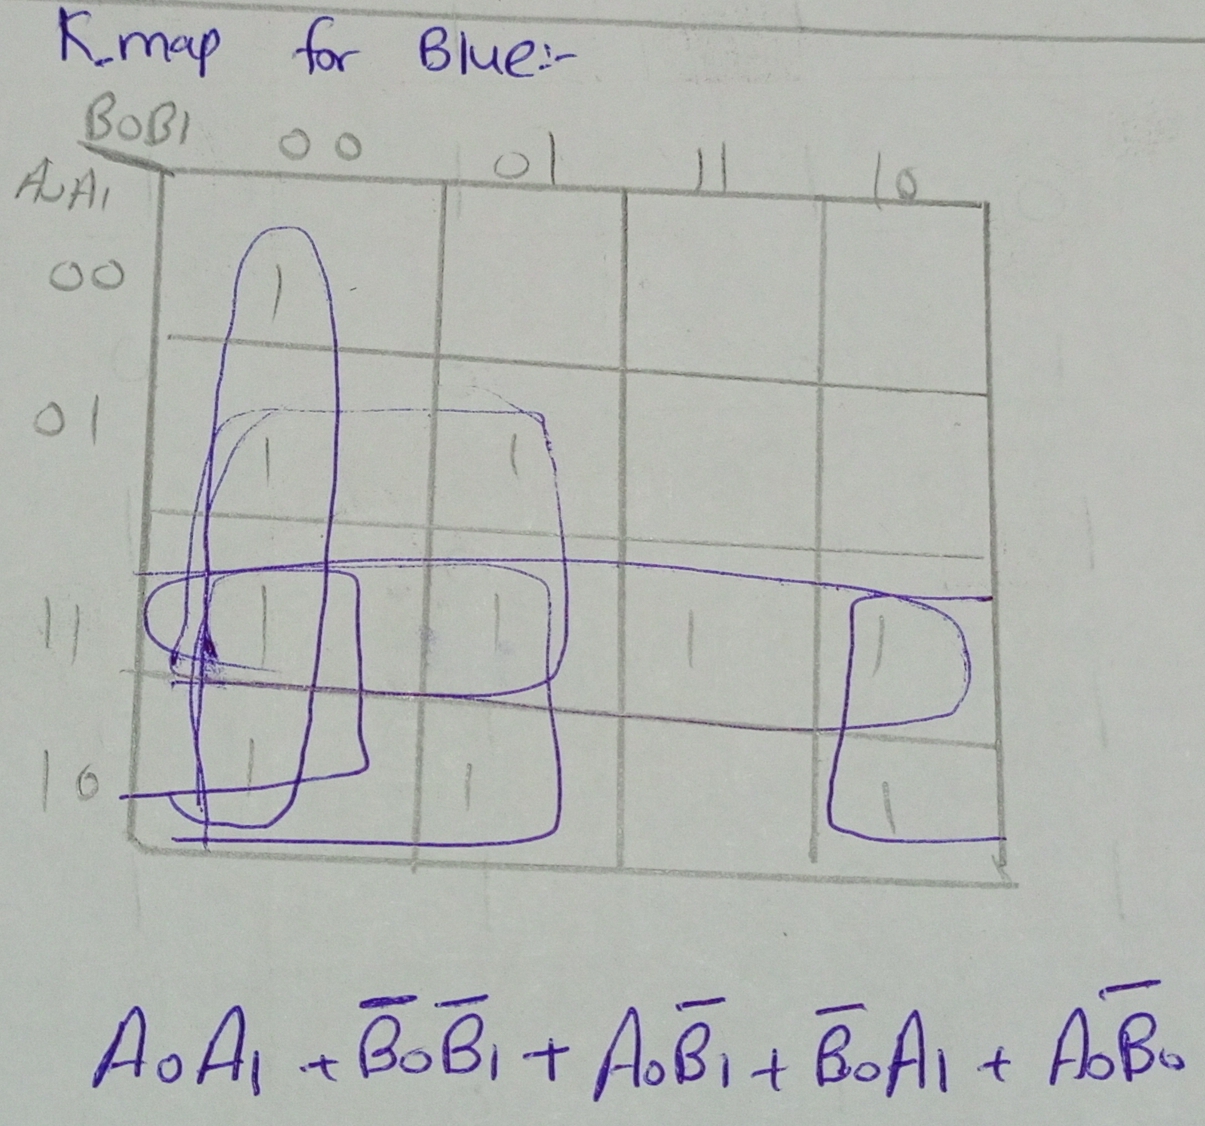 K-map for Blue:-
B0B1 00 01 11 10
A0A1
00 1
01 1 1
11 1 1 1 1
10 1 1 1
A0A1 + B̅0B̅1 + A0B̅1 + B̅0A1 + A0B̅0